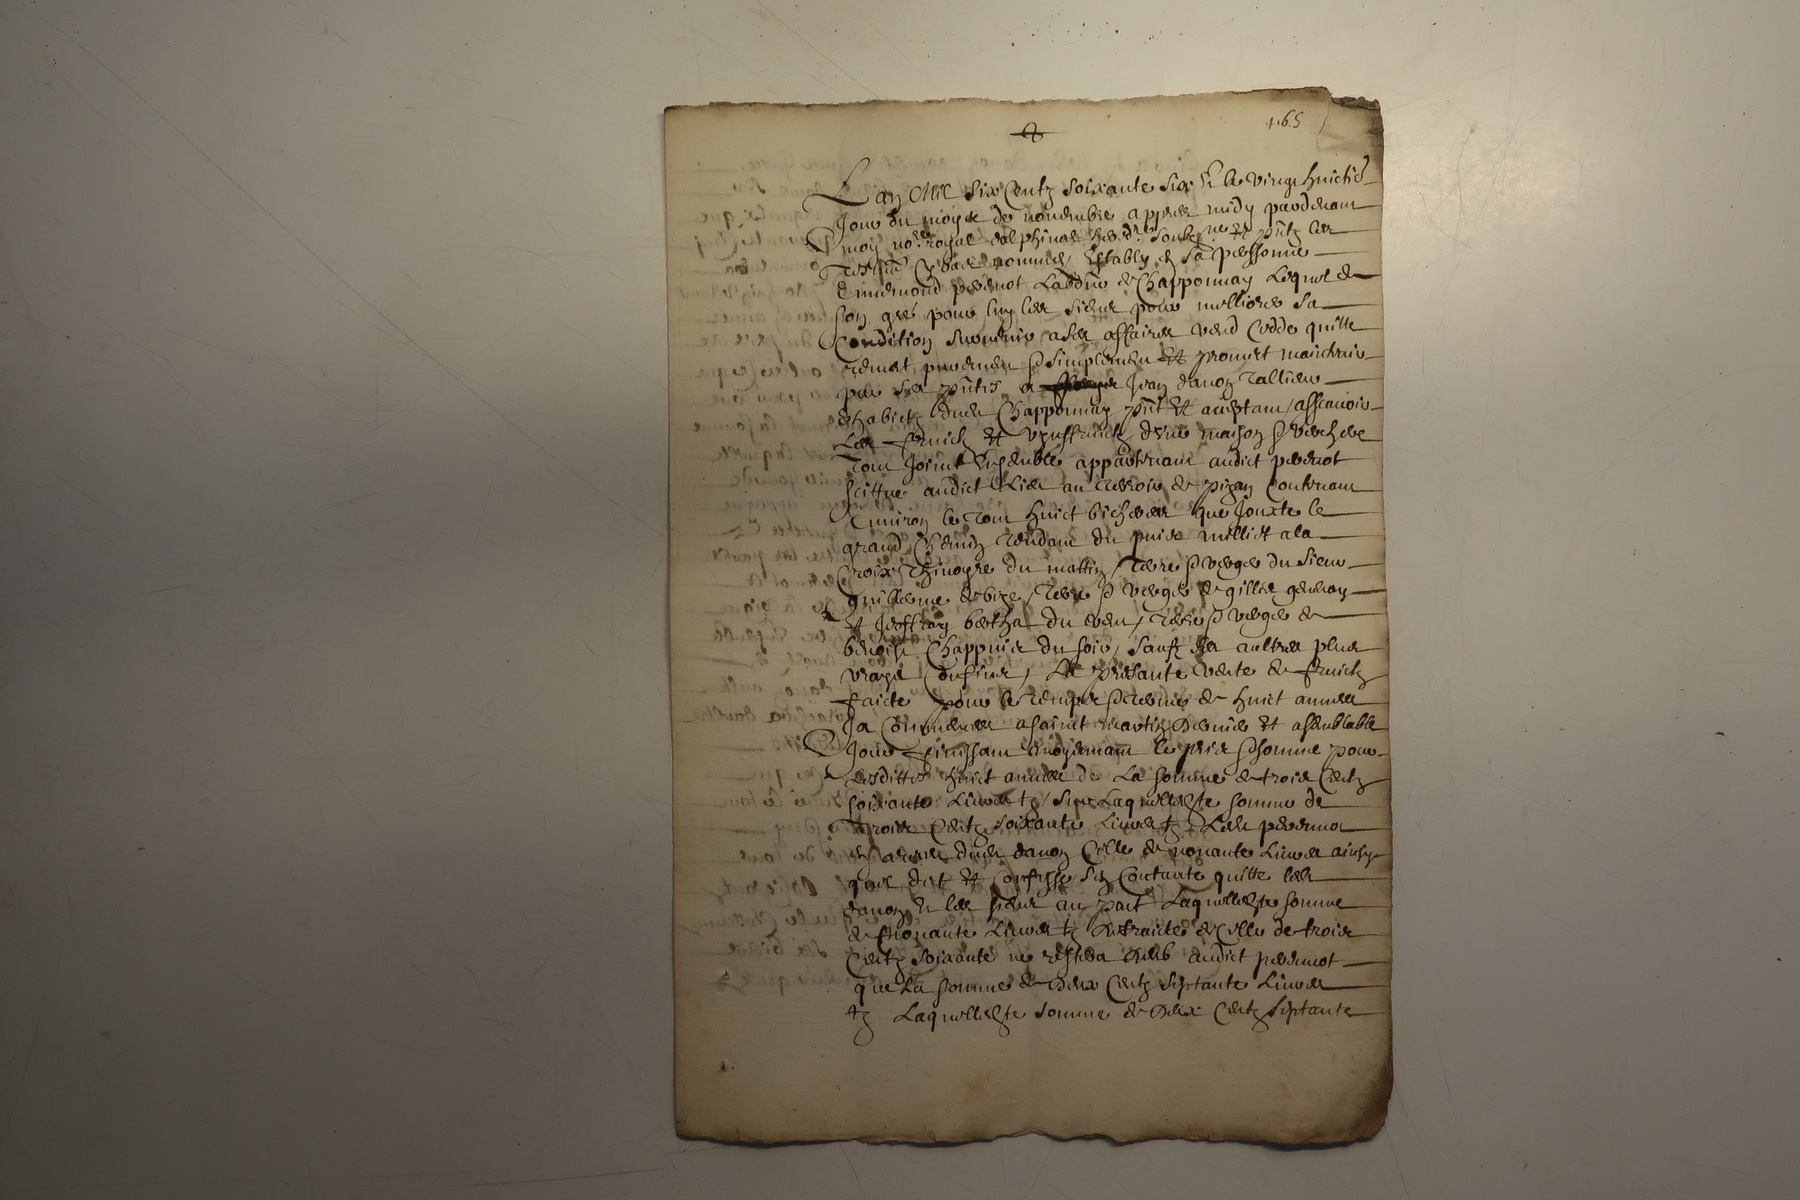 165
L an Mil six Centz soixante six & le vingt huictie
Jour du moys de novembre appres midy pardevant
moy no.re royal dalphinal hered.re soubz.ne & pñtz les
tesm. cy bas nommes, Estably en sa perssonne
Enimond pevenot Labou.r de Chapponnay Lequel de
son gré pour luy les siens pour melliorer sa
Condition survenir a ses affaires vend cedde quitte
remet purement & simplement & promet maintenir
par ses pñtes a Jean danon tallieur
& habit. dud. Chapponnay pñt & aceptant, assavoir
Les fruictz & usuffruictz d'une maison & verchere
tout Joinct Ensemble appartenant audict pevenot
scittue audict Lieu au terroir de contenant
Environ le tout huict bicherees que Jouxte le
grand Chemin tendant du puis milliet a la
Croix du mattin, terre & verger du sieur
guilleme terre & verger de gillie
& Jeoffray bertha du vent, terre & verger de
benoist Chappuis du soir, sauf ses aultres plus
vrays Confins, La presante vente de fruictz
faicte pour le temps & terme de huict annees
Ja Commencees a sainct martin dernier & a semblable
Jour finissant moyenant le prix & somme pour
Lesdittes huict annees de La somme de trois Centz
soixante Livres tz, sur Laquelle somme de
trois Centz soixante Livres tz Led. pevenot
a receu dud. danon Celle de nonante Livres ainsy
quil dict & Confesse sen Contante quitte led.
danon & les siens au pact Laquelle somme
de nonante Livres tz distraicte de Celle de trois
Centz soixante ne restera deub audict pevenot
que La somme de deux Centz septante Livres
tz Laquelle somme de deux Centz septante